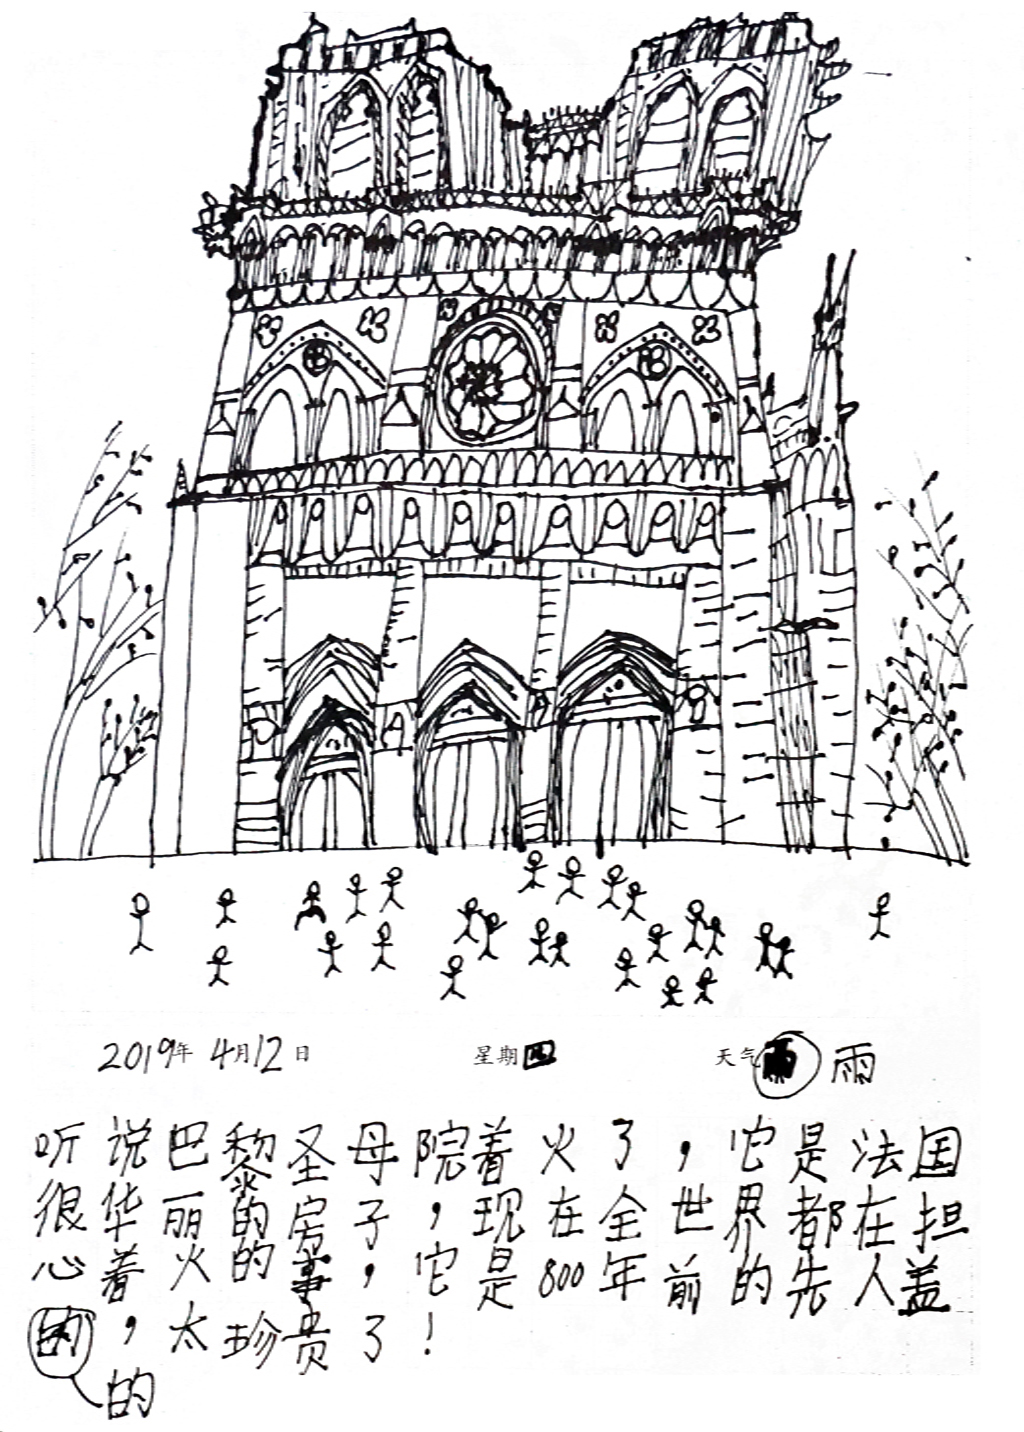 2019年 4月12日 星期四 天气 雨
听说巴黎圣母院着火了，它是法国
很华丽的房子，现在全世界都在担
心着火的事，它是800年前的先人盖
的，太珍贵了！